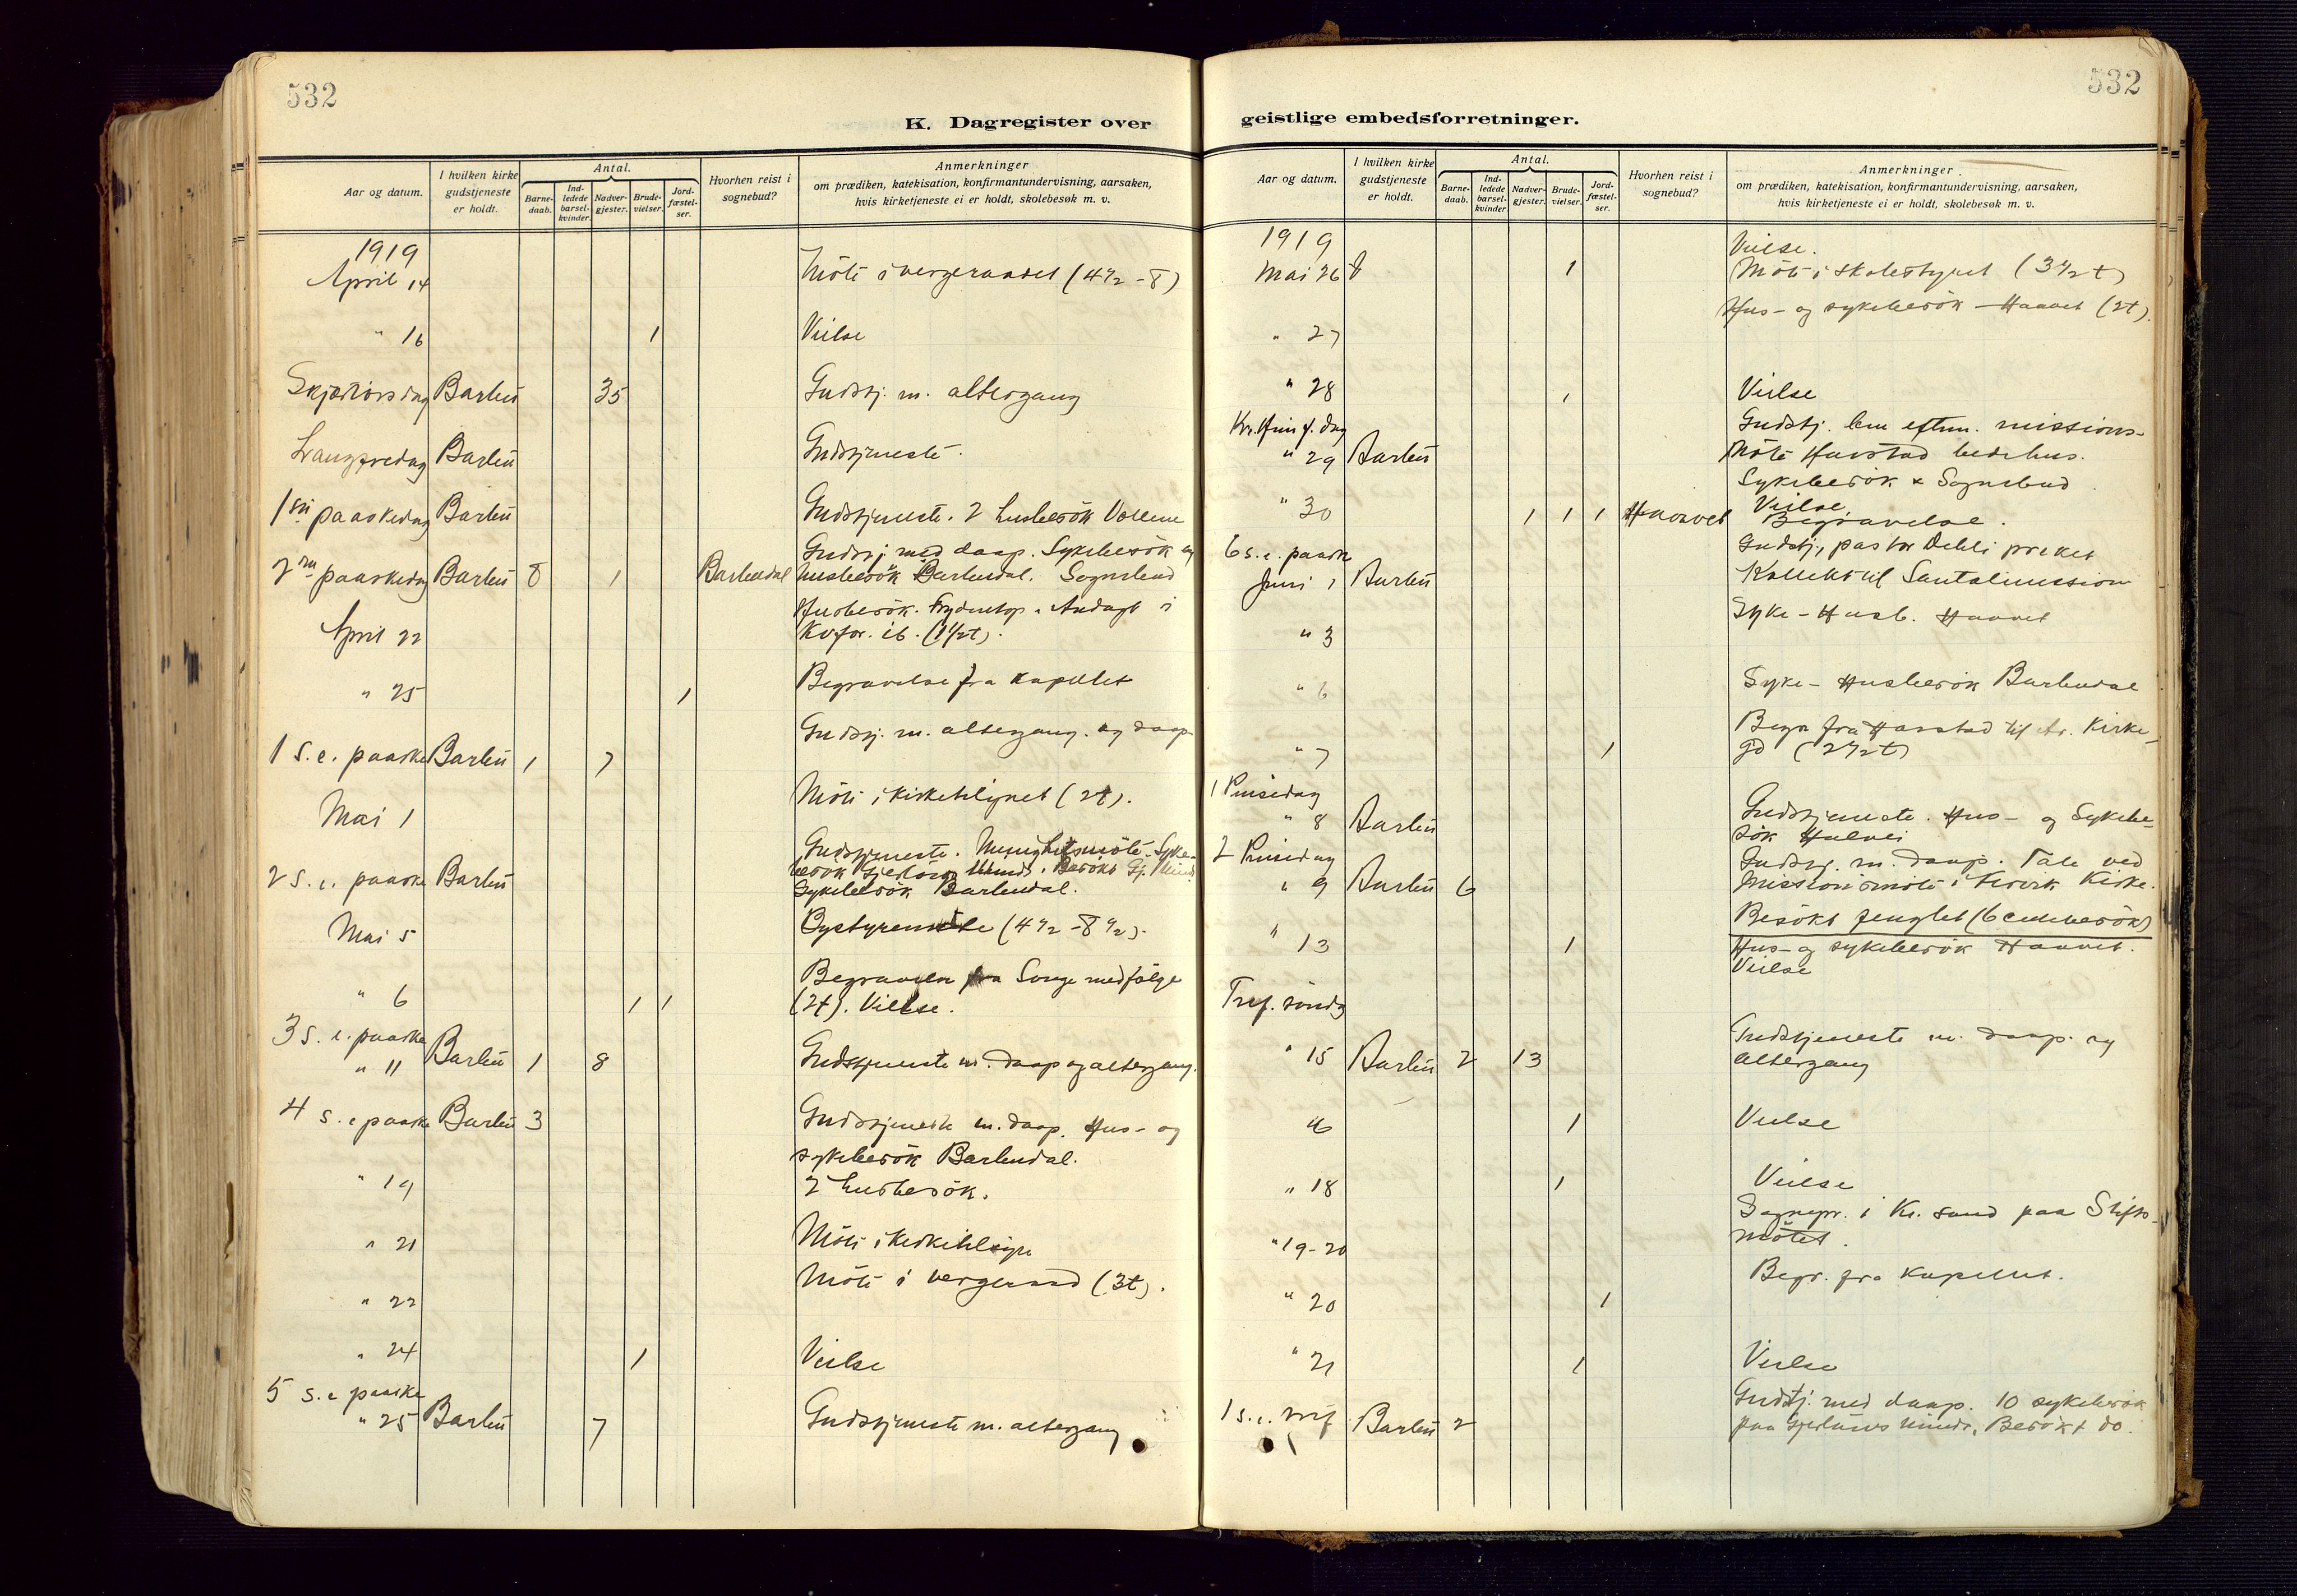 532
K. Dagregister over
Aar og datum.
I hvilken kirke gudstjeneste er holdt.
Antal.
Barne-daab.
Ind-ledede barsel-kvinder.
Nadver-gjester.
Brude-vielser.
Jord-fæstel-ser.
Hvorhen reist i sognebud?
Anmerkninger
om prædiken, katekisation, konfirmantundervisning, aarsaken,
hvis kirketjeneste ei er holdt, skolebesøk m. v.
1919
April 14 Möte i vergeraadet (4½-8)
" 16 1 Vielse
Skjærtorsdag Barbu 35 Gudstj. m. altergang
Langfredag Barbu Gudstjeneste.
1ste paaskedag Barbu Gudstjeneste. 2 husbesök Vollene
Gudstj med daap. Sykebesök og
2den paaskedag Barbu 8 1 Barbudal husbesök Barbudal. Sognebud
Husbesök. Andagt i
April 22 (1½t).
" 25 1 Begravelse fra kapellet
Gudstj. m. altergang. og daap
1 S. e. paaske Barbu 1 7
Mai 1 Möte i kirketilsynet (2t).
Gudstjeneste. Menighetsmöte. Syke-
2 S. e. paaske Barbu besök Gjerlöws Minde. Besökt Gj. Minde
Sykebesök Barbudal.
Mai 5 Bystyremöte (4½-8½).
Begravelse fra Songe medfölge
" 6 1 1 (2t). Vielse.
3 S. e. paaske
" 11 Barbu 1 8 Gudstjeneste m. daap og altergang.
4 S. e paaske Barbu 3 Gudstjeneste m. daap. Hus- og
sykebesök Barbudal.
" 19 2 husbesök.
" 21 Möte i kirketilsyn
" 22 Möte i vergeraad (3t).
" 24 1 Vielse
5 S. e paaske
" 25 Barbu 7 Gudstjeneste m. altergang
532
geistlige embedsforretninger.
Aar og datum.
I hvilken kirke gudstjeneste er holdt.
Antal.
Barne-daab.
Ind-ledede barsel-kvinder
Nadver-gjester.
Brude-vielser.
Jord-fæstel-ser.
Hvorhen reist i sognebud?
Anmerkninger.
om prædiken, katekisation, konfirmantundervisning, aarsaken,
hvis kirketjeneste ei er holdt, skolebesøk m. v.
1919 Vielse.
Mai 26 1 Möte i skolestyret (3½t)
Hus- og sykebesök - Haavet (2t).
" 27
" 28 1 Vielse
Kr. Himf. dag Gudstj. eftm. missions-
" 29 Barbu möte Harstad bedehus.
Sykebesök & Sognebud
" 30 1 1 1 Haavet Vielse.
Begravelse.
6 s. e. paaske Gudstj, pastor Dehli præket
Juni 1 Barbu Kollekt til Santalmission
" 3 Syke- Husb. Haavet
" 6 Syke- Husbesök Barbudal
Begr fra Harstad til Kirke-
" 7 1 gd (2½t)
1 Pinsedag
" 8 Barbu Gudstjeneste. Hus- og Sykebe-
sök
2 Pinsedag Gudstj. m. daap. Tale ved
" 9 Barbu 6 missionsmöte i Kirke.
Besökt fenglet (6 cellebesök)
" 13 1 Hus- og sykebesök Haavet.
Vielse
Tref. söndg
" 15 Barbu 2 13 Gudstjeneste m. daap. og
altergang
16 1 Vielse
" 18 1 Vielse
Sognepr. i Kr. sand paa Stifts-
" 19-20 mötet.
" 20 1 Begr. fra kapellet.
" 21 1 Vielse
Gudstj. med daap. 10 sykebesök
1 s. e. tref Barbu 2 paa Gjerlöws Minde. Besökt do.